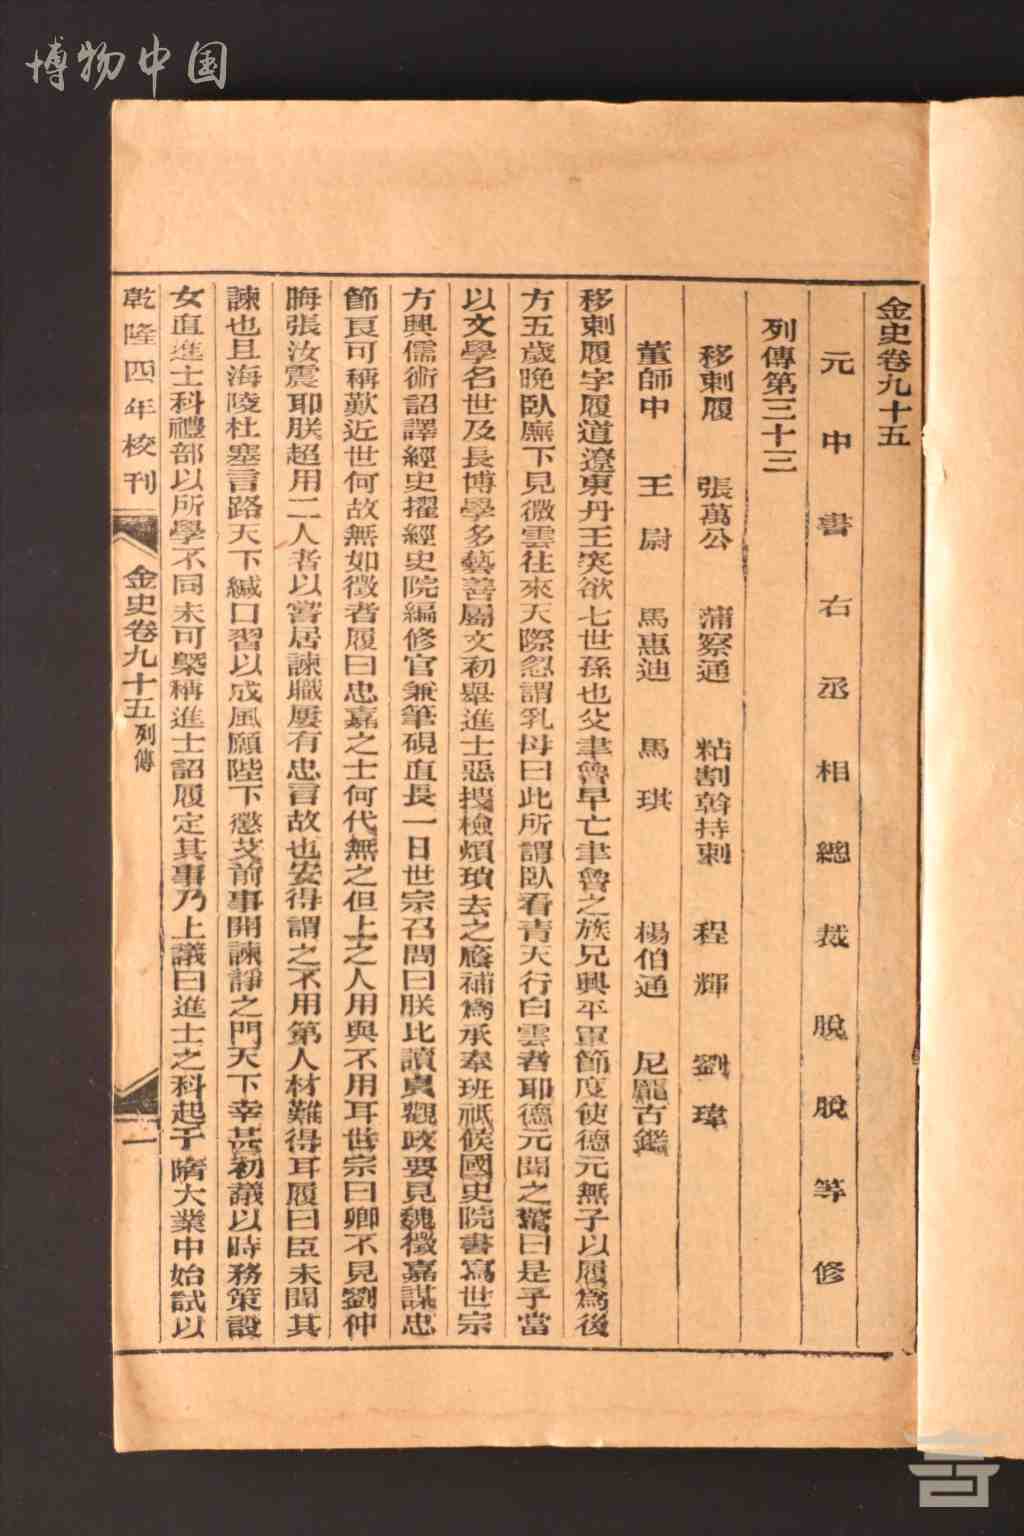 博物中国
金史卷九十五
元中書右丞相總裁脫脫等修
列傳第三十三
移剌履 張萬公 蒲察通 粘割斡特剌 程輝 劉瑋
董師中 王尉 馬惠迪 馬琪 楊伯通 尼厖古鑑
移剌履字履道遼東丹王突欲七世孫也父聿魯早亡聿魯之族兄興平軍節度使德元無子以履爲後
方五歲晚臥廡下見微雲往來天際忽謂乳母曰此所謂臥看青天行白雲者耶德元聞之驚曰是子當
以文學名世及長博學多藝善屬文初舉進士惡搜檢煩瑣去之廕補爲承奉班祗候國史院書寫世宗
方興儒術詔譯經史擢經史院編修官兼筆硯直長一日世宗召問曰朕比讀貞觀政要見魏徵嘉謀忠
節良可稱歎近世何故無如徵者履曰忠嘉之士何代無之但上之人用與不用耳世宗曰卿不見劉仲
晦張汝震耶朕超用二人者以嘗居諫職屢有忠言故也安得謂之不用第人材難得耳履曰臣未聞其
諫也且海陵杜塞言路天下緘口習以成風願陛下懲艾前事開諫諍之門天下幸甚初議以時務策設
女直進士科禮部以所學不同未可槩稱進士詔履定其事乃上議曰進士之科起于隋大業中始試以
乾隆四年校刊 金史卷九十五 列傳 一